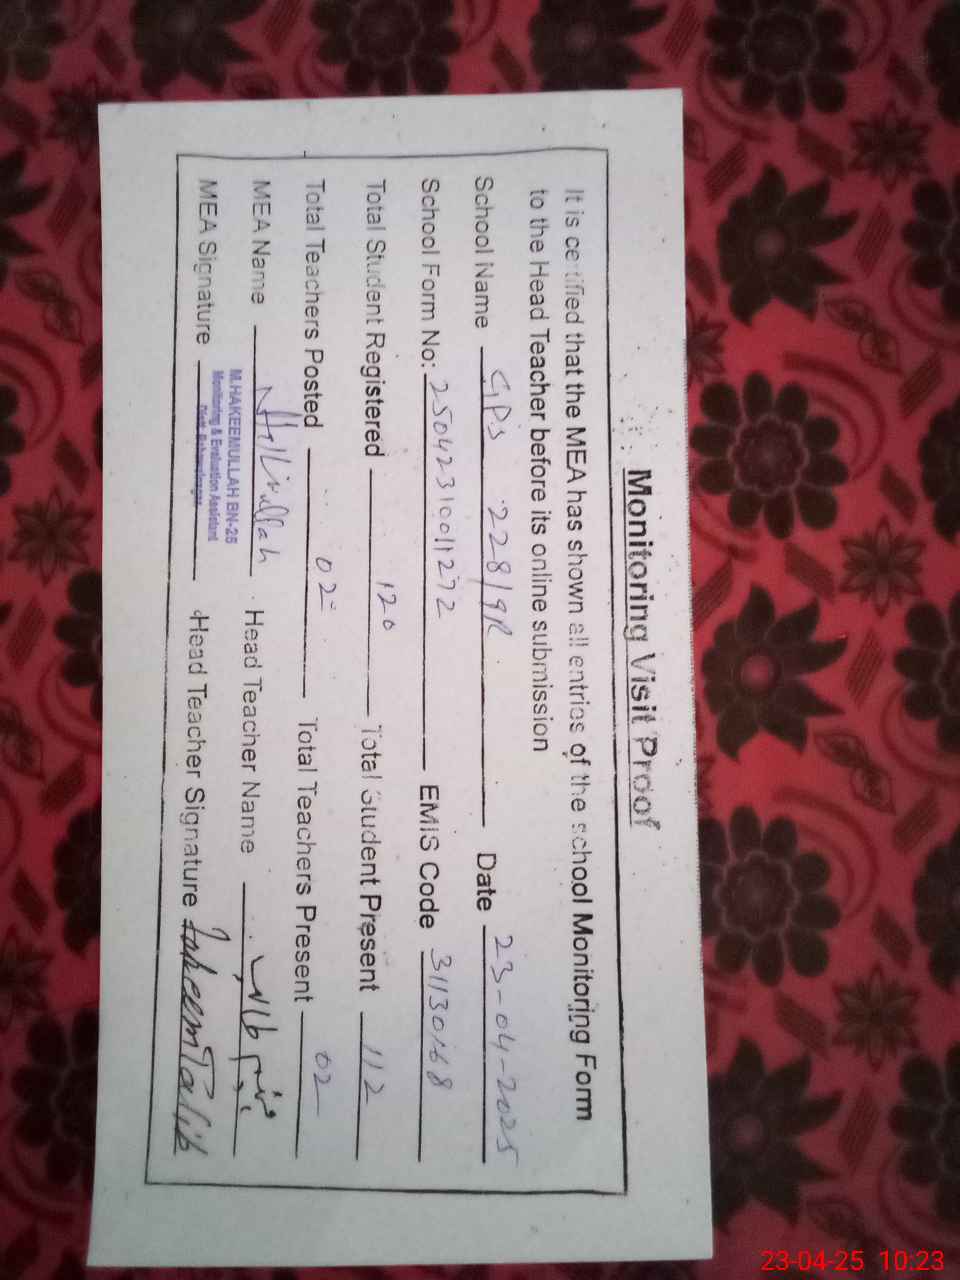 Monitoring Visit Proof
It is certified that the MEA has shown all entries of the school Monitoring Form
to the Head Teacher before its online submission
School Name GPS 228/9R Date 23-04-2025
School Form No: 25042310011272 EMIS Code 31130168
Total Student Registered 120 Total Student Present 112
Total Teachers Posted 02 Total Teachers Present 02
MEA Name Head Teacher Name
M.HAKEEMULLAH BN-26
Monitoring & Evaluation Assistant
Distt. Bahawalnagar
MEA Signature Head Teacher Signature
23-04-25 10:23